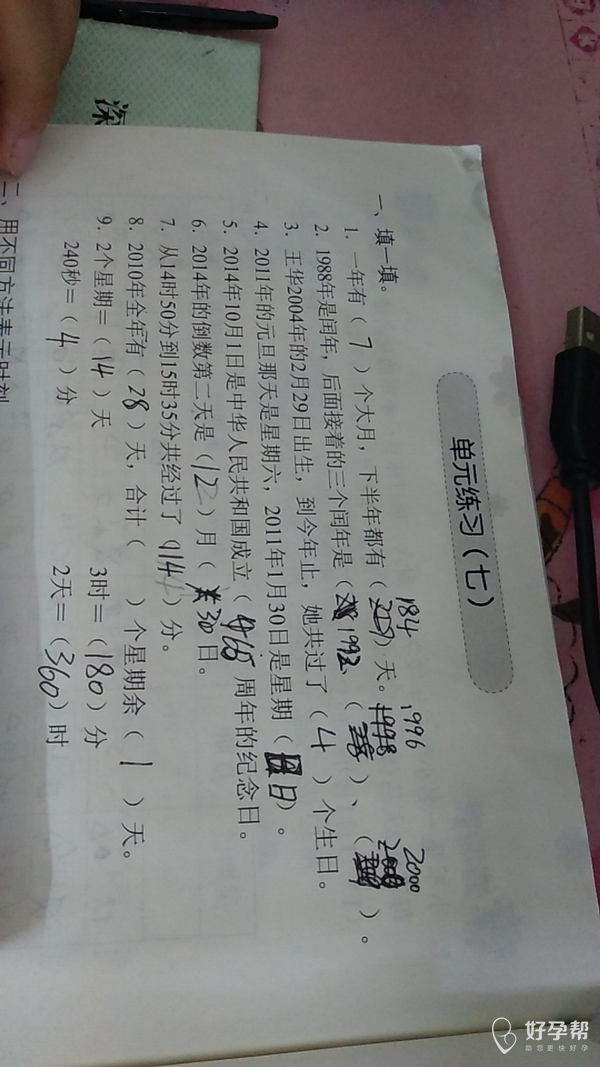 深
单元练习(七)
一、填一填。
1. 一年有( 7 )个大月,下半年都有( 184 )天。
2. 1988年是闰年,后面接着的三个闰年是( 1992 )、( 1996 )、( 2000 )。
3. 王华2004年的2月29日出生,到今年止,她共过了( 4 )个生日。
4. 2011年的元旦那天是星期六,2011年1月30日是星期( 日 )。
5. 2014年10月1日是中华人民共和国成立( 65 )周年的纪念日。
6. 2014年的倒数第二天是( 12 )月( 30 )日。
7. 从14时50分到15时35分共经过了( )分。
8. 2010年全年有( 28 )天,合计( )个星期余( 1 )天。
9. 2个星期=( 14 )天 3时=( 180 )分
240秒=( 4 )分 2天=( 360 )时
二、用不同方法表示时刻
好孕帮
助您更快好孕